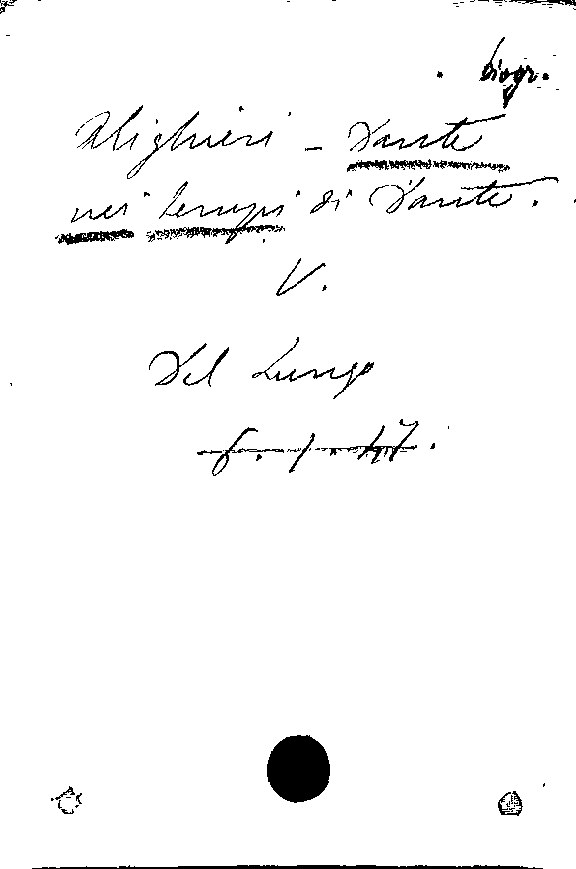 biogr.
Alighieri - Dante
nei tempi di Dante.
V.
Del Lungo
6. 1. 47.